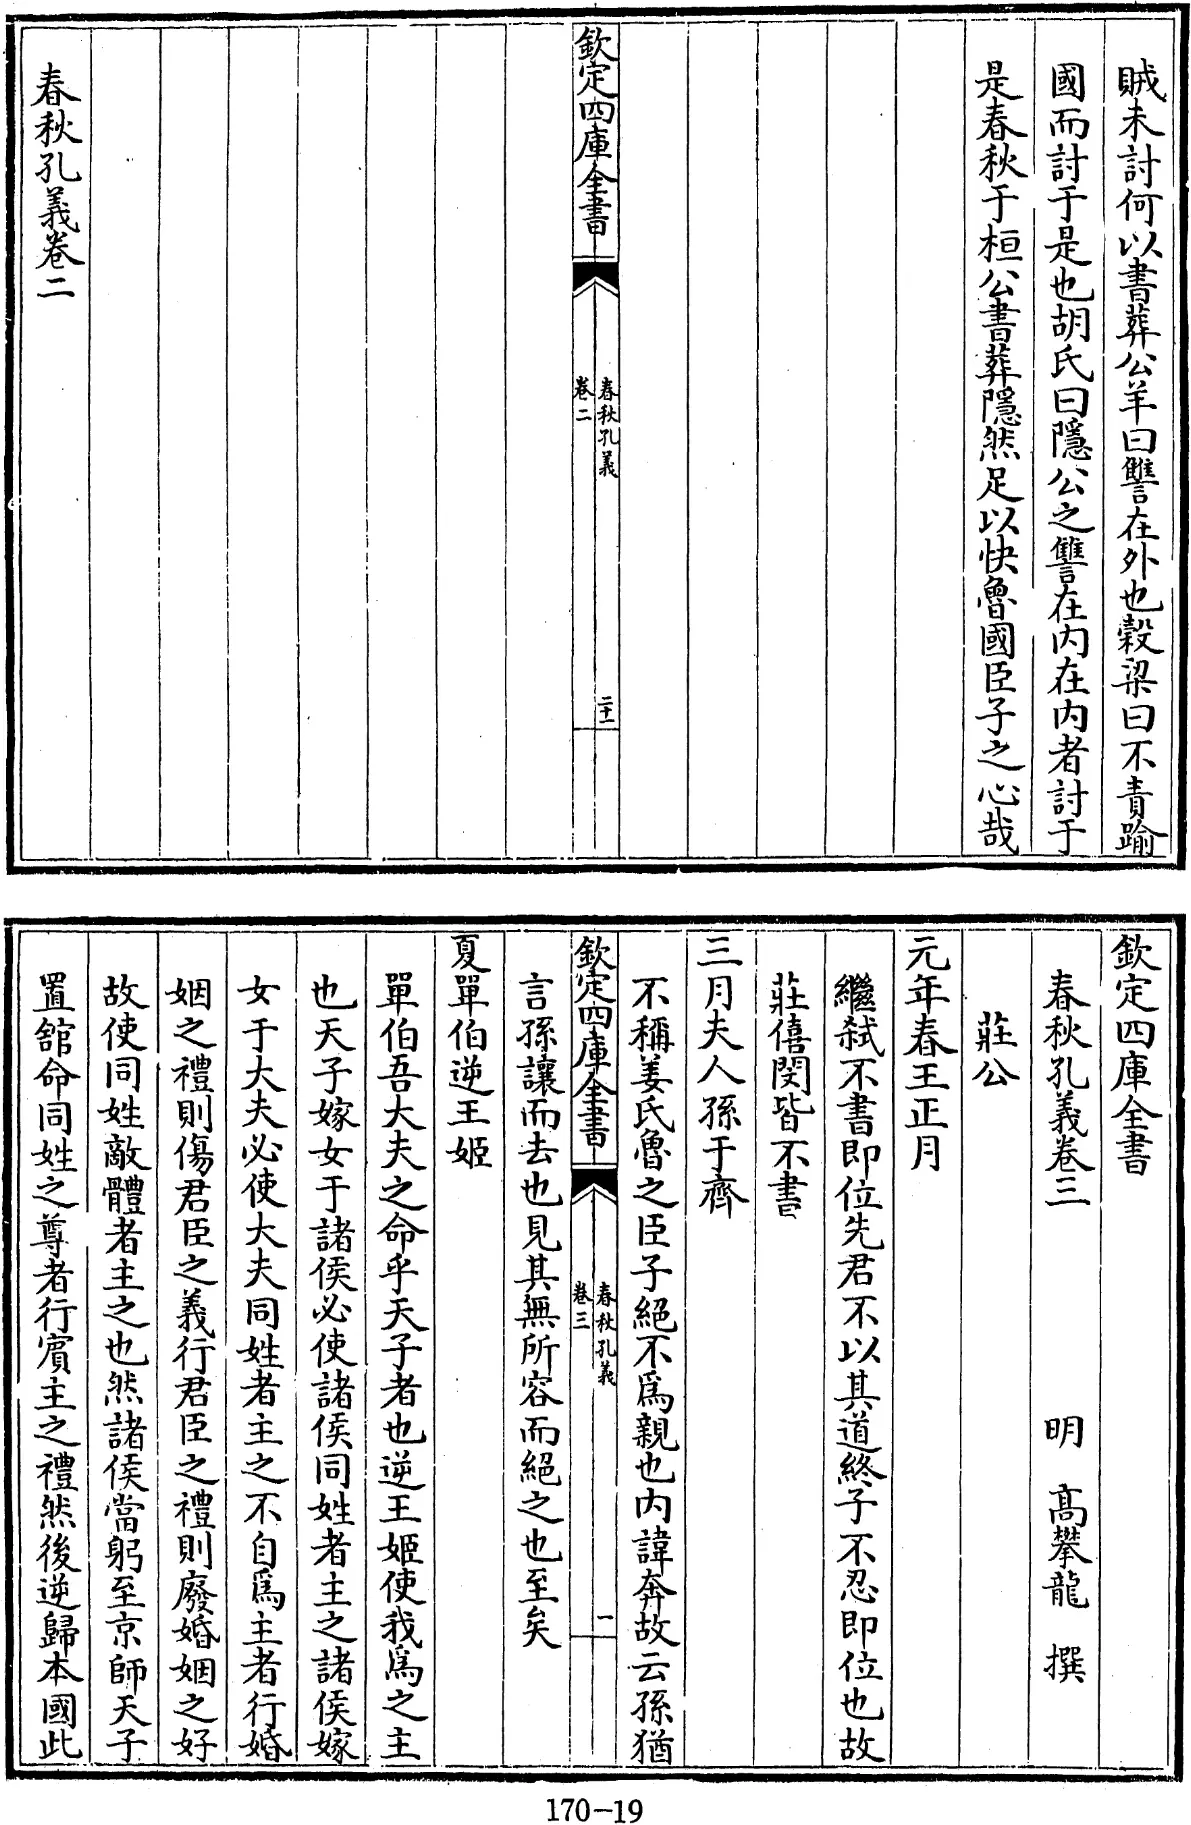 賊未討何以書葬公羊曰讐在外也穀梁曰不責踰
國而討于是也胡氏曰隱公之讐在内在内者討于
是春秋于桓公書葬隱然足以快魯國臣子之心哉
欽定四庫全書
春秋孔義
卷二
二十一
春秋孔義卷二
欽定四庫全書
春秋孔義卷三
明 高攀龍 撰
莊公
元年春王正月
繼弒不書即位先君不以其道終子不忍即位也故
莊僖閔皆不書
三月夫人孫于齊
不稱姜氏魯之臣子絕不爲親也内諱奔故云孫猶
欽定四庫全書
春秋孔義
卷三
一
言孫讓而去也見其無所容而絕之也至矣
夏單伯逆王姬
單伯吾大夫之命乎天子者也逆王姬使我爲之主
也天子嫁女于諸侯必使諸侯同姓者主之諸侯嫁
女于大夫必使大夫同姓者主之不自爲主者行婚
姻之禮則傷君臣之義行君臣之禮則廢婚姻之好
故使同姓敵體者主之也然諸侯當躬至京師天子
置舘命同姓之尊者行賔主之禮然後逆歸本國此
170-19